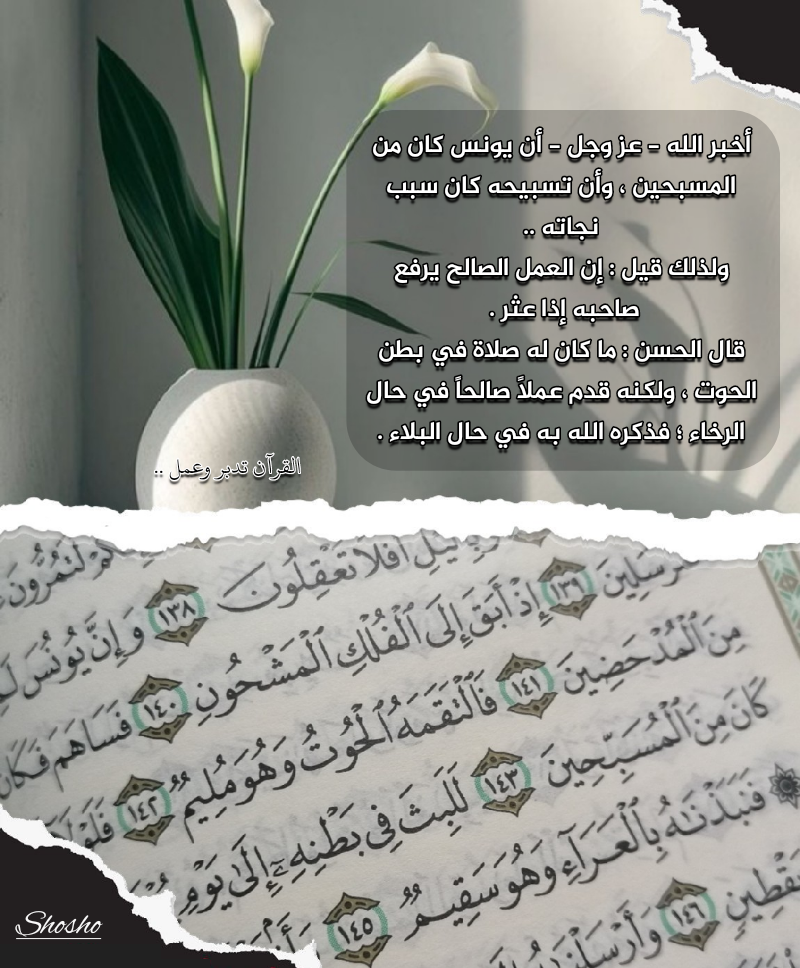 أخبر الله - عز وجل - أن يونس كان من
المسبحين ، وأن تسبيحه كان سبب
نجاته ..
ولذلك قيل : إن العمل الصالح يرفع
صاحبه إذا عثر .
قال الحسن : ما كان له صلاة في بطن
الحوت ، ولكنه قدم عملاً صالحاً في حال
الرخاء ؛ فذكره الله به في حال البلاء .
القرآن تدبر وعمل ..
أَفَلَا تَعْقِلُونَ ١٣٨ وَإِنَّ يُونُسَ
١٣٩ إِذْ أَبَقَ إِلَى ٱلْفُلْكِ ٱلْمَشْحُونِ ١٤٠ فَسَاهَمَ فَكَانَ
مِنَ ٱلْمُدْحَضِينَ ١٤١ فَٱلْتَقَمَهُ ٱلْحُوتُ وَهُوَ مُلِيمٌ ١٤٢
كَانَ مِنَ ٱلْمُسَبِّحِينَ ١٤٣ لَلَبِثَ فِى بَطْنِهِۦٓ إِلَىٰ يَوْمِ
فَنَبَذْنَٰهُ بِٱلْعَرَآءِ وَهُوَ سَقِيمٌ ١٤٥
١٤٦
Shosho